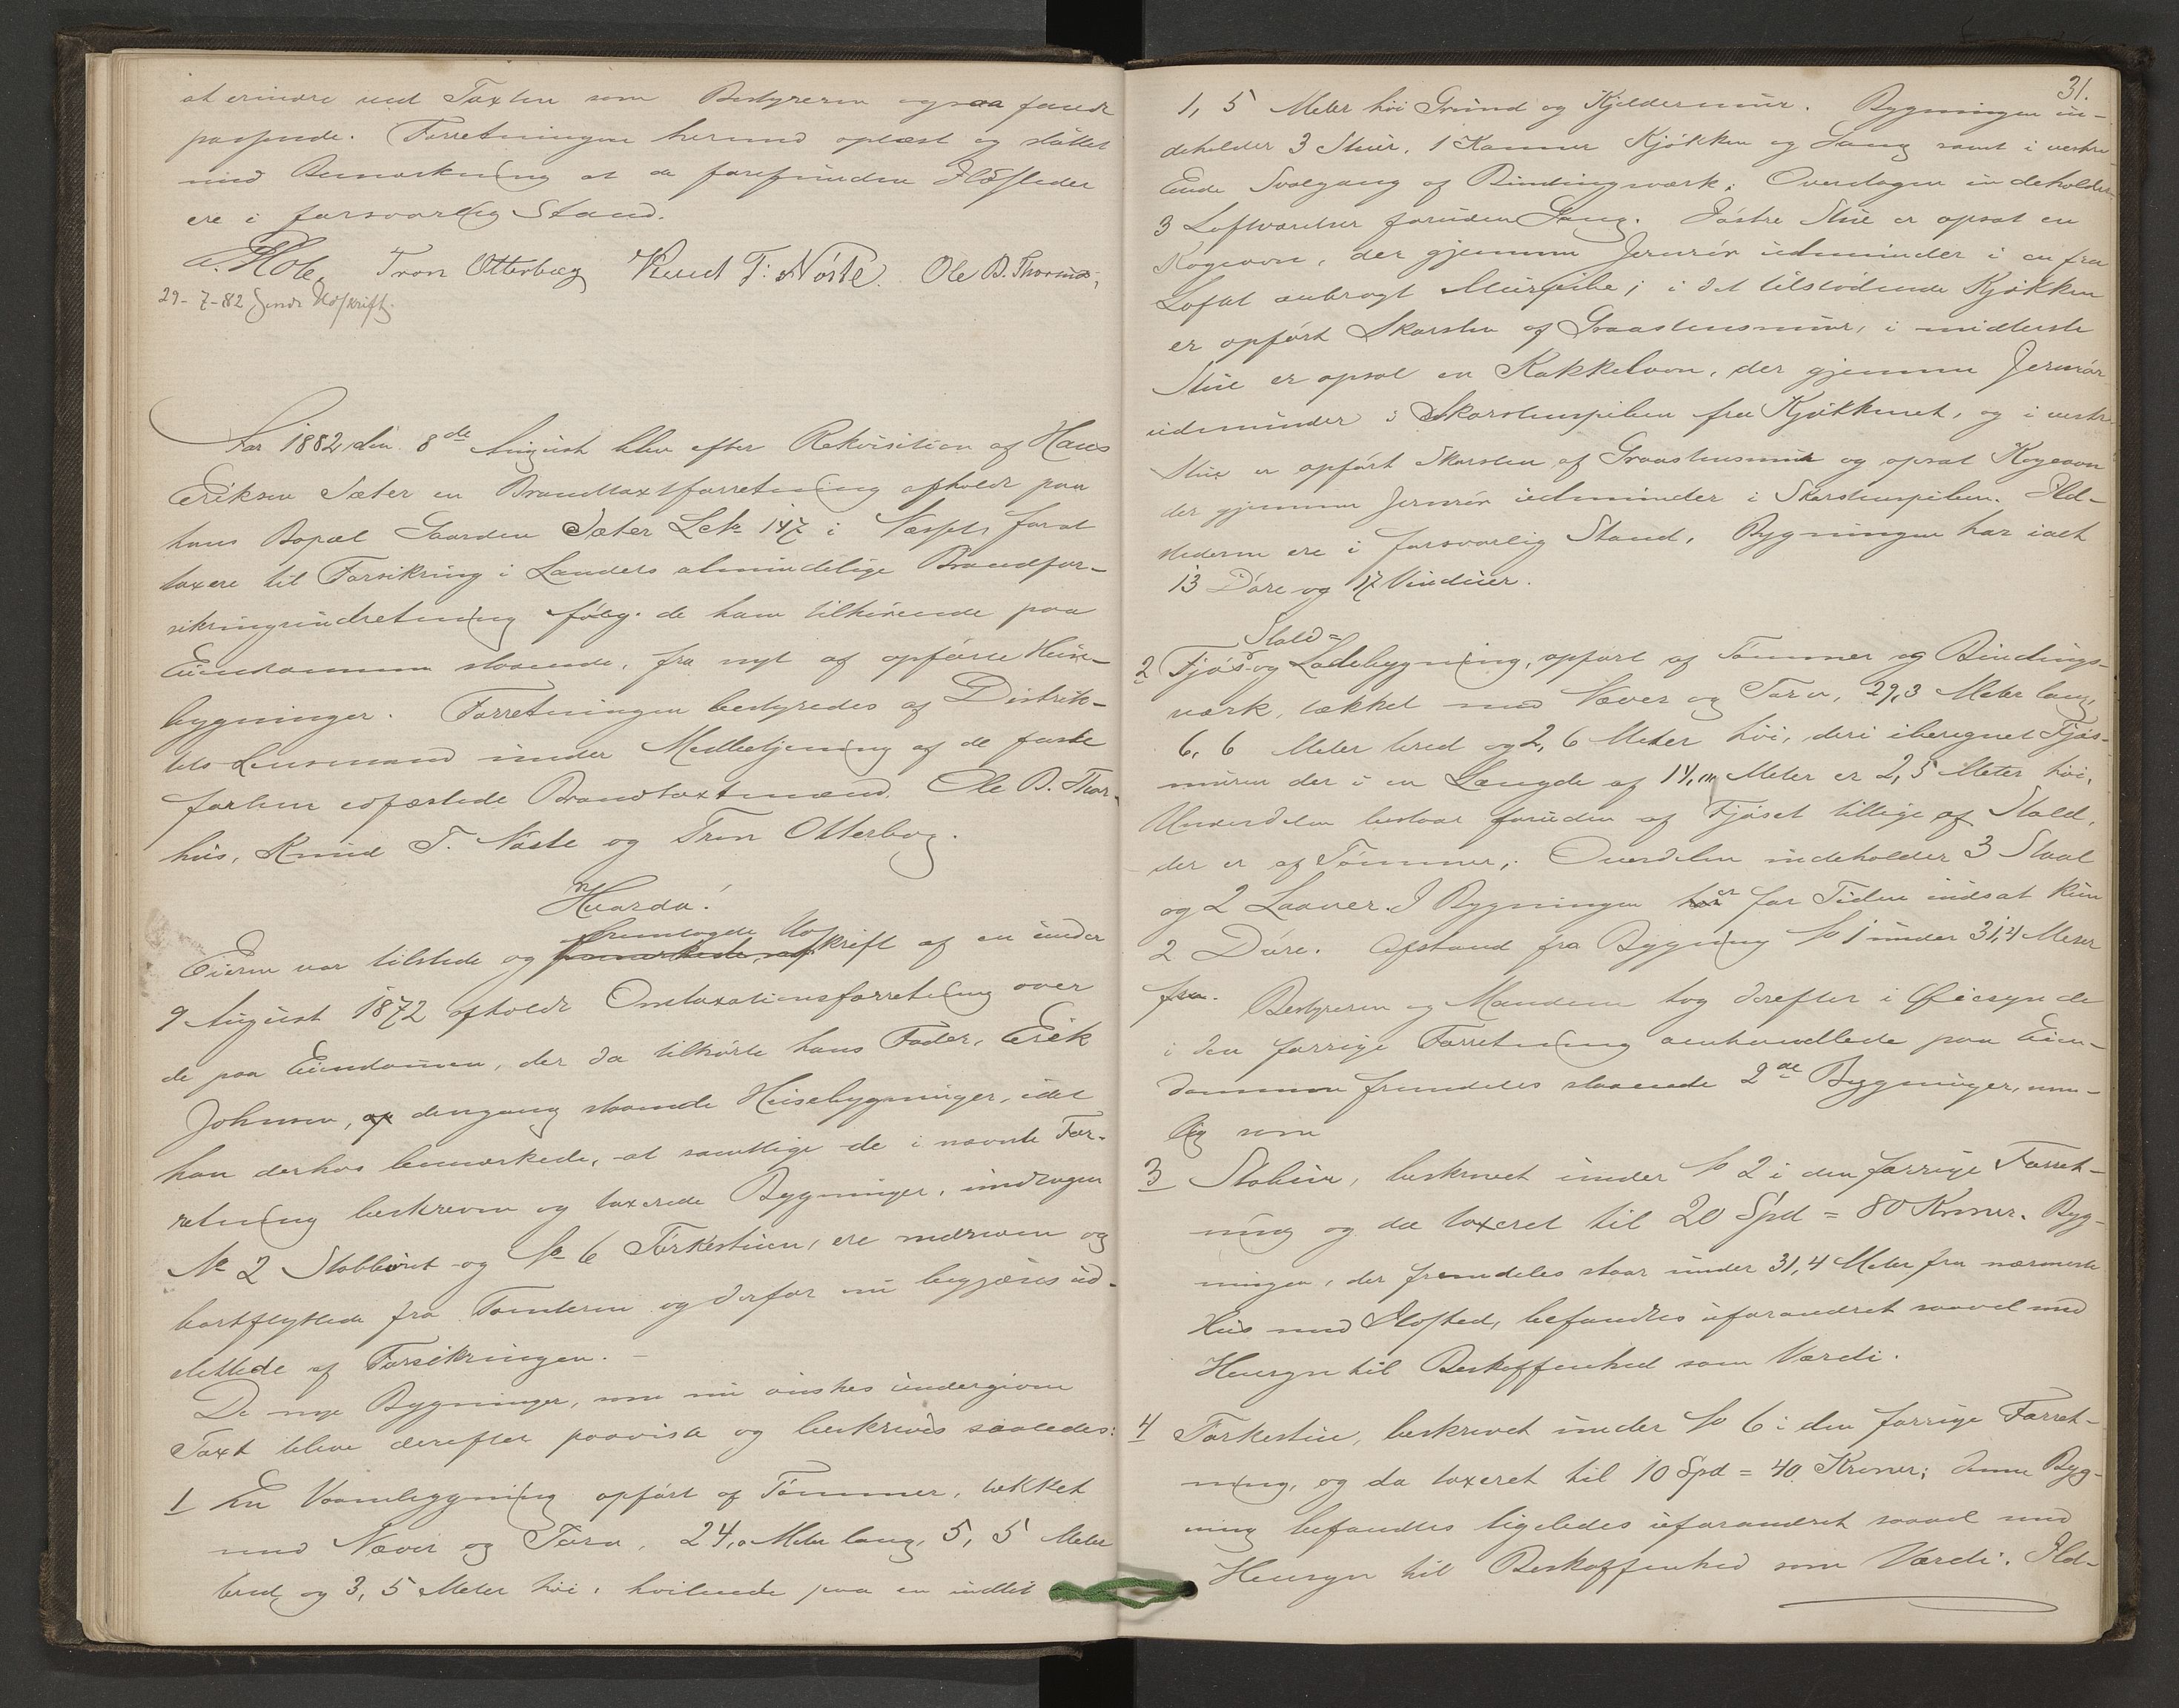 at erindre ved Taxten som Bestyreren ogsaa fandt
passende. Forretningen hermed oplæst og sluttet
med Bemærkning at de forefundne Ildsteder
ere i forsvarlig Stand.
Hole. Tron Otterbæg Knud T: Nöste. Ole B. Thorhus,
29-7-82 Sendt Udskrift.
Aar 1882 den 8de August blev efter Rekvisition af Hans
Eriksen Sæter en Brandtaxtforretning afholdt paa
hans Bopæl Gaarden Sæter L.No 147 i Næsset for at
taxere til Forsikring i Landets almindelige Brandfor-
sikringsindretning følg. de ham tilhørende paa
Eiendommen staaende, fra nyt af opførte Huse-
bygninger. Forretningen bestyredes af Distrik-
tets Lensmand under Medbetjening af de faste
forhen edfæstede Brandtaxtmænd Ole B. Thor-
hus, Knud T. Nöste og Tron Otterbæg.
Hvorda!
Eieren var tilstede og fremlagde Udskrift af en under
9 August 1872 afholdt Omtaxationsforretning over
de paa Eiendommen, der da tilhørte hans Fader, Erik
Johnsen, dengang staaende Husebygninger, idet
han derhos bemærkede, at samtlige de i nævnte For-
retning beskrevne og taxerede Bygninger, undtagen
No 2 Stabburet og No 6 Tørkestuen, ere nedrevne og
bortflyttede fra Tomterne og derfor nu begjæres ud-
slettede af Forsikringen. -
De nye Bygninger, som nu ønskes undergivne
Taxt bleve derefter paavist og beskrives saaledes:
1 En Vaanebygning opført af Tømmer, tækket
med Næver og Torv, 24,0 Meter lang, 5,5 Meter
bred og 3,5 Meter høi, hvilende paa en indtil
31.
1,5 Meter høi Grund og Kjeldermuur. Bygningen in-
deholder 3 Stuer, 1 Kammer Kjøkken og Gang samt i vestre
Ende Svalgang af Bindingsværk; Overetagen indeholder
3 Loftværelser foruden Gang. I østre Stue er opsat en
Kogeovn, der gjennem Jernrør udmunder i en fra
Loftet anbragt Muurpibe; i det tilstødende Kjøkken
er opført Skorsten af Graastensmuur, i midterste
Stue er opsat en Kakkelovn, der gjennem Jernrør
udmunder i Skorstenspiben fra Kjøkkenet, og i vestre
Stue er opført Skorsten af Graastensmuur og opsat Kogeovn
der gjennem Jernrør udmunder i Skorstenspiben. Ild-
stederne ere i forsvarlig Stand. Bygningen har ialt
13 Døre og 17 Vinduer.
Stald=
2 Fjøs- og Ladebygning, opført af Tømmer og Bindings-
værk, tækket med Næver og Torv, 29,3 Meter lang,
6,6 Meter bred og 2,6 Meter høi, deri iberegnet Fjøs-
muren der i en Længde af 14,m Meter er 2,5 Meter høi.
Underdelen bestaar foruden af Fjøset tillige af Stald,
der er af Tømmer; Overdelen indeholder 3 Staal
og 2 Laaver. I Bygningen er for Tiden indsat kun
2 Døre. Afstand fra Bygning No 1 under 31,4 Meter
fra. Bestyreren og Mændene tog derefter i Øiesyn de
i den forrige Forretning omhandlede paa Eien-
dommen fremdeles staaende 2de Bygninger, nem-
lig som
3 Stabur, beskrevet under No 2 i den forrige Forret-
ning og da taxeret til 20 Spd = 80 Kroner. Byg-
ningen, der fremdeles staar under 31,4 Meter fra nærmeste
Hus med Ildsted, befandtes uforandret saavel med
Hensyn til Beskaffenhed som Værdi.
4 Tørkestue, beskrevet under No 6 i den forrige Forret-
ning, og da taxeret til 10 Spd = 40 Kroner; denne Byg-
ning befandtes ligeledes uforandret saavel med
Hensyn til Beskaffenhed som Værdi. Ild-